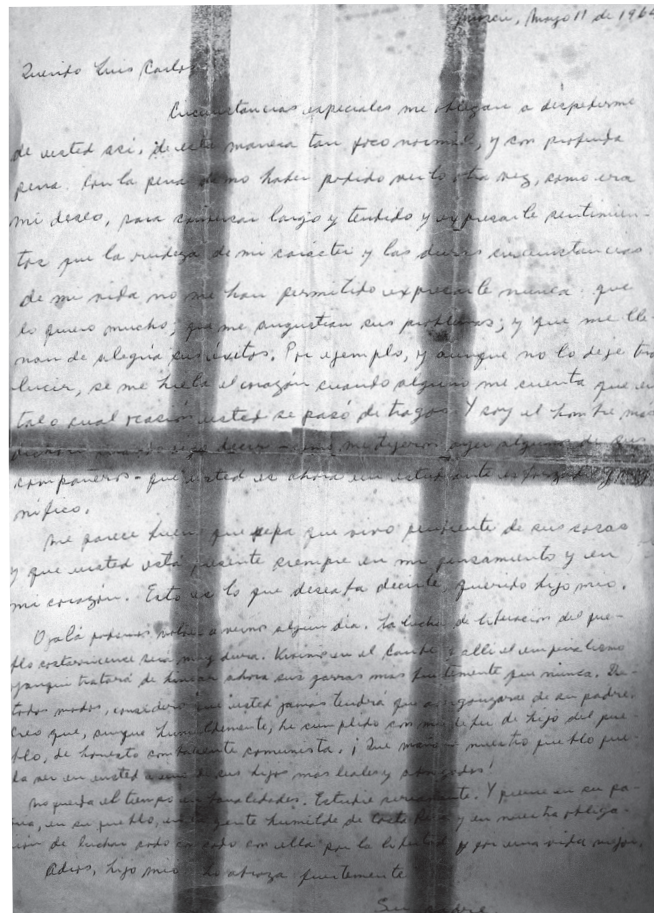 Mayo 11 de
Querido Luis Carlos
Circunstancias especiales me obligan a despedirme
de usted así, de esta manera tan poco normal, y con profunda
pena. Con la pena de no haber podido verlo otra vez, como era
mi deseo, para conversar largo y tendido y expresarle sentimien-
tos que la rudeza de mi carácter y las duras circunstancias
de mi vida no me han permitido expresarle nunca: que
lo quiero mucho; que me angustian sus problemas; y que me lle-
nan de alegría sus éxitos. Por ejemplo, y aunque no lo deje tras
lucir, se me hiela el corazón cuando alguno me cuenta que en
tal o cual ocasión usted se pasó de tragos. Y soy el hombre más
cuando oigo decir - como me dijeron ayer algunos de sus
compañeros - que usted es ahora un estudiante esforzado y mag-
nífico.
Me parece bueno que sepa que vivo pendiente de sus cosas
y que usted está presente siempre en mi pensamiento y en
mi corazón. Esto es lo que deseaba decirle, querido hijo mío.
Ojalá podamos volver a vernos algún día. La lucha de liberación del pue-
blo costarricense será muy dura. Vivimos en el Caribe y allí el imperialismo
yanqui tratará de hincar ahora sus garras más fuertemente que nunca. De
todos modos, considero que usted jamás tendrá que avergonzarse de su padre.
Creo que, aunque humildemente, he cumplido con mi deber de hijo del pue-
blo, de honesto combatiente comunista. ¡Que mañana nuestro pueblo pue-
da ver en usted a uno de sus hijos más leales y abnegados!
No pierda el tiempo en banalidades. Estudie seriamente. Y piense en su pa-
tria, en su pueblo, en la gente humilde de Costa Rica y en nuestra obliga-
ción de luchar codo con codo con ella por la libertad y por una vida mejor.
Adios, hijo mío. Lo abraza fuertemente
Su padre